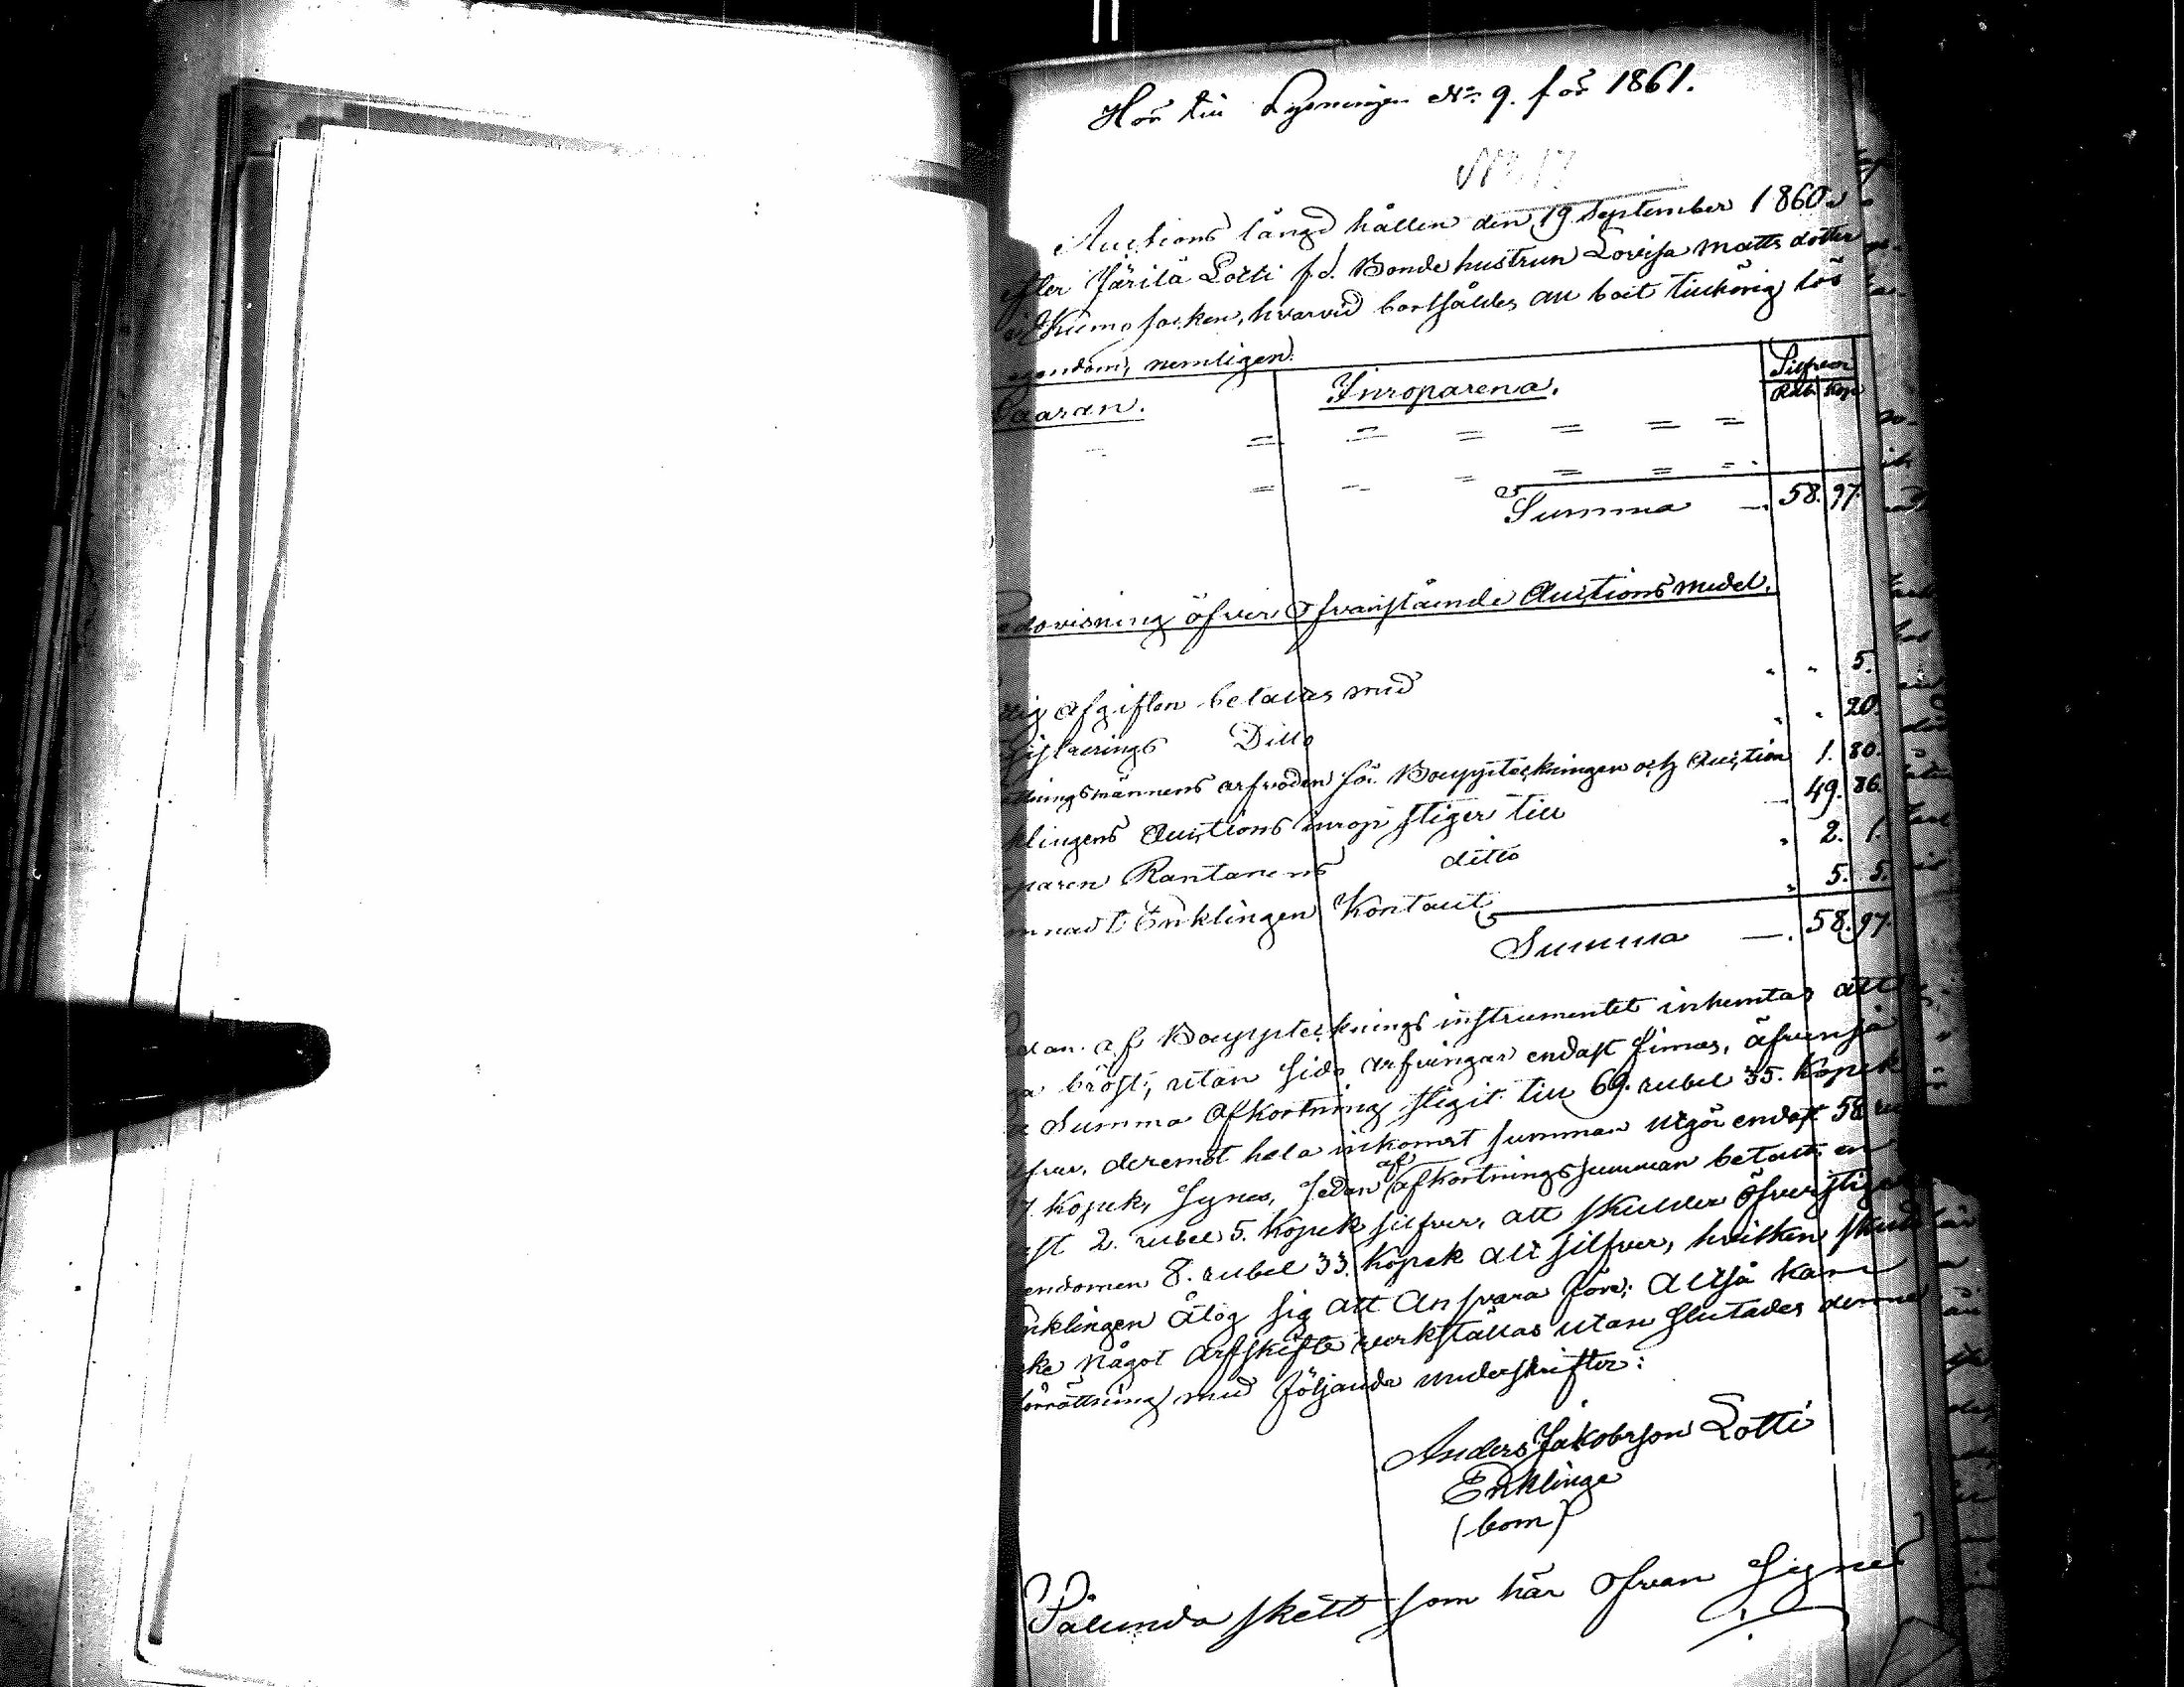 Hör till Lysningen No. 9. för 1861.
No. 17
Auctions längd hållen den 19 September 1860
efter Järilä Lotti f.d. Bonde hustrun Lovisa Matts dotter
Kumo socken, hvarvid bortsåldes all boet tillhörig lös
egendom, nemligen.
Waaran. Inroparena. Silfver
Rub. Kop.
Summa —. 58. 97.
edovisning öfver Ofvanstående Auctions medel.
tig afgiften betaltes med " " 5.
gistrerings Ditto " " 20.
ttningsmännens arfvoden för Bouppteckningen och Auction 1. 80.
klingens Auctions inrop stiger till — 49. 86.
paren Rantanens ditto " 2. 1.
mnadt Enklingen Kontant " 5. 5.
Summa —. 58. 97.
edan af Bouppteknings instrumentet inhemtas att
ga bröst, utan sido arfvingar endast finnas, äfvenså
a Summa Afkortning stigit till 69. rubel 35. Kopek
lfver, deremot hela inkomst summan utgör endast 58 ru
7. Kopek, synes, sedan af afkortningssumman betalt en
ast 2. rubel 5. Kopek silfver, att skulder öfverstiga
endomen 8. rubel 33. Kopek allt silfver, hvilken skuld
nklingen åtog sig att Ansvara före; Altså kan
ke något arfskifte verkställas utan slutades denne
förrättning med följande underskrifter:
Anders Jakobsson Lotti
Enklinge
(bom)
Sålunda skett som här Ofvan Synes